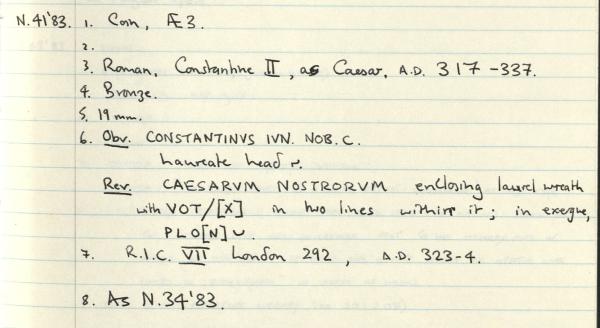 N.41'83. 1. Coin, Æ3.
2.
3. Roman, Constantine II, as Caesar, A.D. 317-337.
4. Bronze.
5. 19mm.
6. Obv. CONSTANTINVS IVN. NOB. C.
Laureate head r.
Rev. CAESARVM NOSTRORVM enclosing laurel wreath
with VOT/[X] in two lines within it; in exergue,
PLO[N]U.
7. R.I.C. VII London 292, A.D. 323-4.
8. As N.34'83.